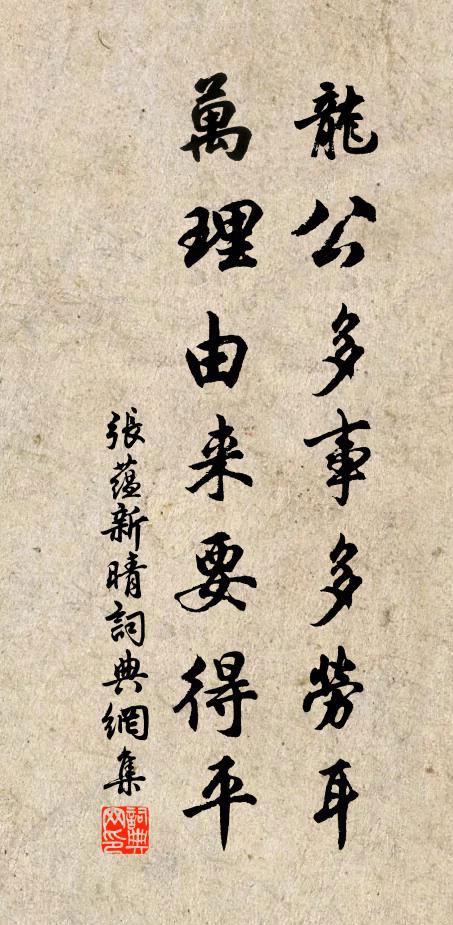 龍公多事多勞耳
萬理由来要得平
張蘊新晴詞典網集
詞典网印